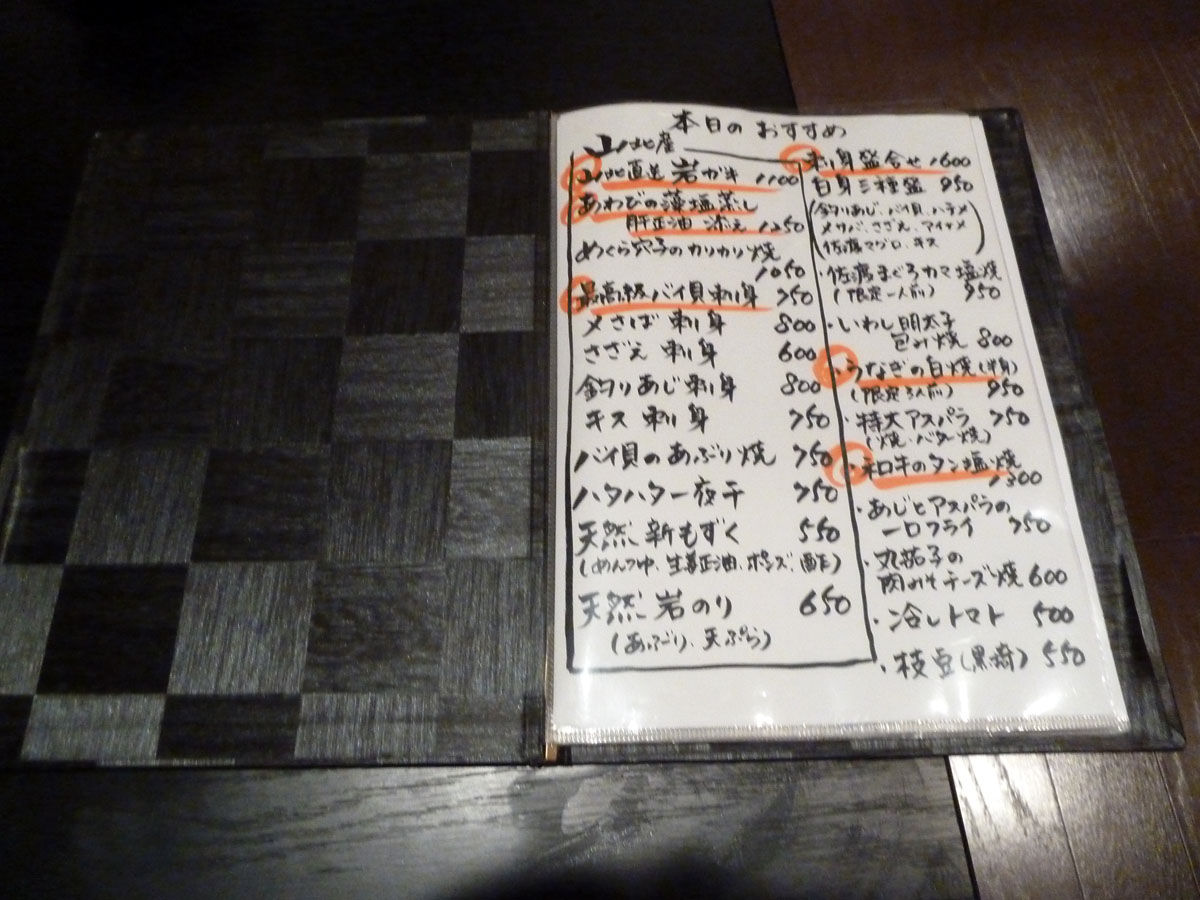 本日のおすすめ
山北産
山北直送 岩ガキ 1100
あわびの藻塩蒸し
肝正油 添え 1250
めくら穴子のカリカリ焼
1050
最高級バイ貝刺身 950
〆さば 刺身 800
さざえ 刺身 600
釣りあじ刺身 800
キス刺身 750
バイ貝のあぶり焼 750
ハタハタ一夜干 750
天然 新もずく 550
(めんつゆ、生姜正油、ポンズ、酢)
天然 岩のり 650
(あぶり、天ぷら)
刺身盛合せ 1600
白身三種盛 950
(釣りあじ、バイ貝、ハチメ
〆サバ、さざえ、アイナメ
佐渡マグロ、キス)
・佐渡まぐろカマ塩焼
(限定一人前) 950
・いわし明太子
包み焼 800
・うなぎの白焼
(限定3人前) 950
・特大アスパラ 750
(焼・バター焼)
・和牛のタン塩焼
1300
・あじとアスパラの
一口フライ 750
・丸茄子の
肉みそチーズ焼 600
・冷しトマト 500
・枝豆(黒埼) 550